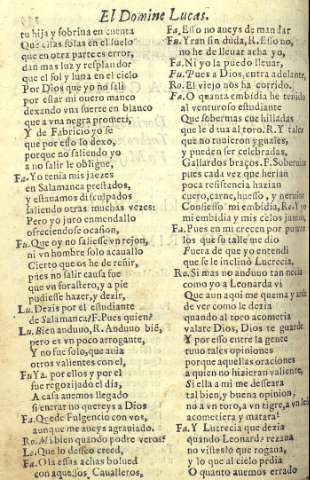 El Domine Lucas.
tu hija y sobrina en cuenta
Que estas solas en el suelo
que en otra parte es error,
dan mas luz y resplandor
que el sol y luna en el cielo
Por Dios que yo no sali
por estar mi ouero manco
dexando vna suerte en blanco
que a vna negra prometi,
Y de Fabricio yo se
que por esso lo dexo,
porque no saliendo yo
a no salir le obligue,
Fa. Yo tenia mis jaezes
en Salamanca prestados,
y estauamos disculpados
saliendo otras muchas vezes:
Pero yo juro enmendallo
ofreciendose ocasion,
Fu. Que oy no saliesse vn rejon,
ni vn hombre solo acauallo
Cierto que os he de reñir,
pues no salir causa fue
que vn forastero, y a pie
pudiesse hazer, y dezir,
Lu. Dezis por el estudiante
de Salamanca? F. Pues quien?
Lu. Bien anduuo, R. Anduuo biē,
pero es vn poco arrogante,
Y no fue solo, que auia
otros valientes con el,
Fu. Ya por ellos y por el
fue regozijado el dia,
A casa auemos llegado
si entrar no quereys a Dios
Fa. Quede Fulgencio con vos,
aunque me auceys agrauiado.
Ro. Mi bien quando podre veros?
Le. Que lo desseo creed,
Fa. Ola essas achas bolued
con aquestos Caualleros,
Fa. Esso no aueys de mandar
Fu. Yran sin duda, R. Esso no,
no he de lleuar acha yo,
Fa. Ni yo la puedo lleuar,
Fu. Pues a Dios, entra adelante,
Ro. El viejo nos ha corrido.
Fa. O quanta embidia he tenido
al venturoso estudiante
Que soberuias cuchilladas
que le dio al toro. R. Y tales
que no tuuieron yguales,
y pueden ser celebradas,
Gallardos braços. F. Soberuios
pues cada vez que herian
poca resistencia hazian
cuero, carne, huesso, y neruios
Confiesso mi embidia, Ro. Y yo
mi embidia y mis celos juntos,
Fa. Pues en mi crecen por puntos
los que su talle me dio
Fuera de que yo entendi
que se le inclinò Lucrecia,
Ro. Si mas no anduuo tan necia
como yo a Leonarda vi
Que aun aqui me quema y arde
de ver como le dezia
quando al toro acometia
valate Dios, Dios te guarde
Y por esso entre la gente
tuuo tales opiniones
porque aquellas oraciones
a quien no hizieran valiente,
Si ella a mi me desseara
tal bien, y buena opinion,
no a vn toro, a vn tigre, a vn leō
acometiera y matara:
Fa. Y Lucrecia que dezia
quando Leonarda rezana
no vistes lo que rogana,
y lo que al cielo pedia
O quanto auemos errado